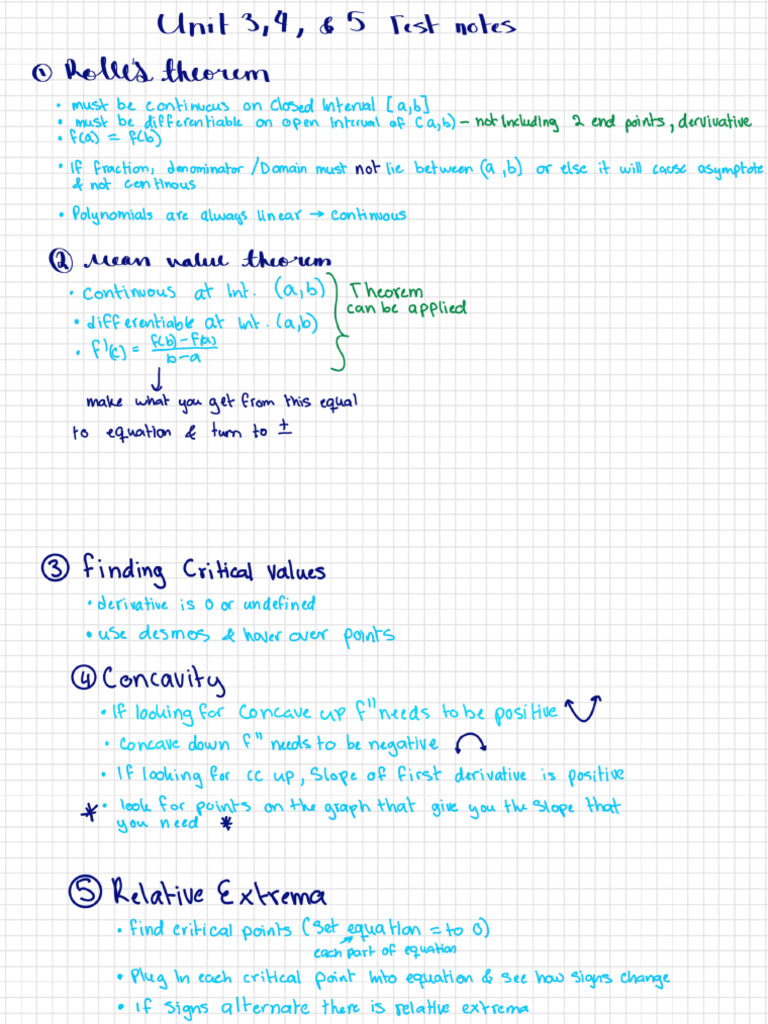 Unit 3,4, & 5 Test notes
① Rolle's theorem
• must be continuous on closed interval [a,b]
• must be differentiable on open interval of (a,b) - not including 2 end points, dervivative
• f(a) = f(b)
• If fraction, denominator / Domain must not lie between (a,b) or else it will cause asymptote
& not continous
• Polynomials are always linear → continuous
② Mean value theorem
• continuous at Int. (a,b)
• differentiable at Int. (a,b)
• f'(c) = f(b)-f(a) / b-a
Theorem
can be applied
↓
make what you get from this equal
to equation & turn to ±
③ Finding Critical values
• derivative is 0 or undefined
• use desmos & hover over points
④ Concavity
• If looking for concave up f" needs to be positive
• concave down f" needs to be negative
• If looking for cc up, slope of first derivative is positive
* • look for points on the graph that give you the slope that
you need *
⑤ Relative Extrema
• find critical points (set equation = to 0)
each part of equation
• Plug in each critical point into equation & see how signs change
• if signs alternate there is relative extrema